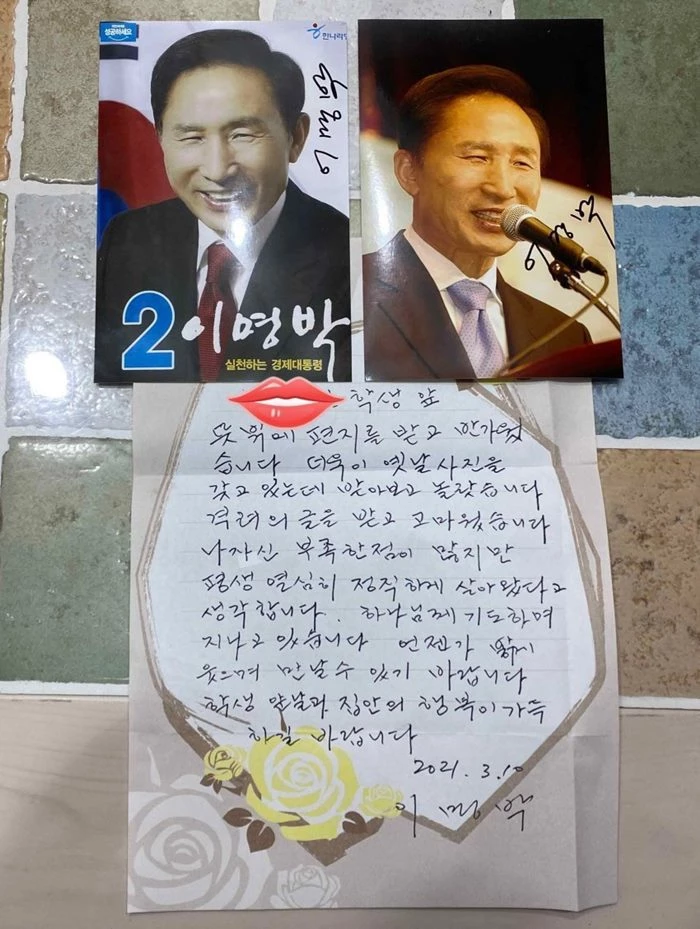 성공하세요
한나라당
2 이명박
실천하는 경제대통령
이명박
학생 앞
뜻 밖에 편지를 받고 반가웠
습니다 더욱이 옛날 사진을
갖고 있는데 받아보고 놀랐습니다
격려의 글을 받고 고마웠습니다
나자신 부족한점이 많지만
평생 열심히 정직하게 살아왔다고
생각합니다. 하나님께 기도하며
지나고 있습니다 언젠가 함께
웃으며 만날수 있기 바랍니다
학생 앞날과 집안의 행복이 가득
하길 바랍니다
2021. 3. 10
이 명 박